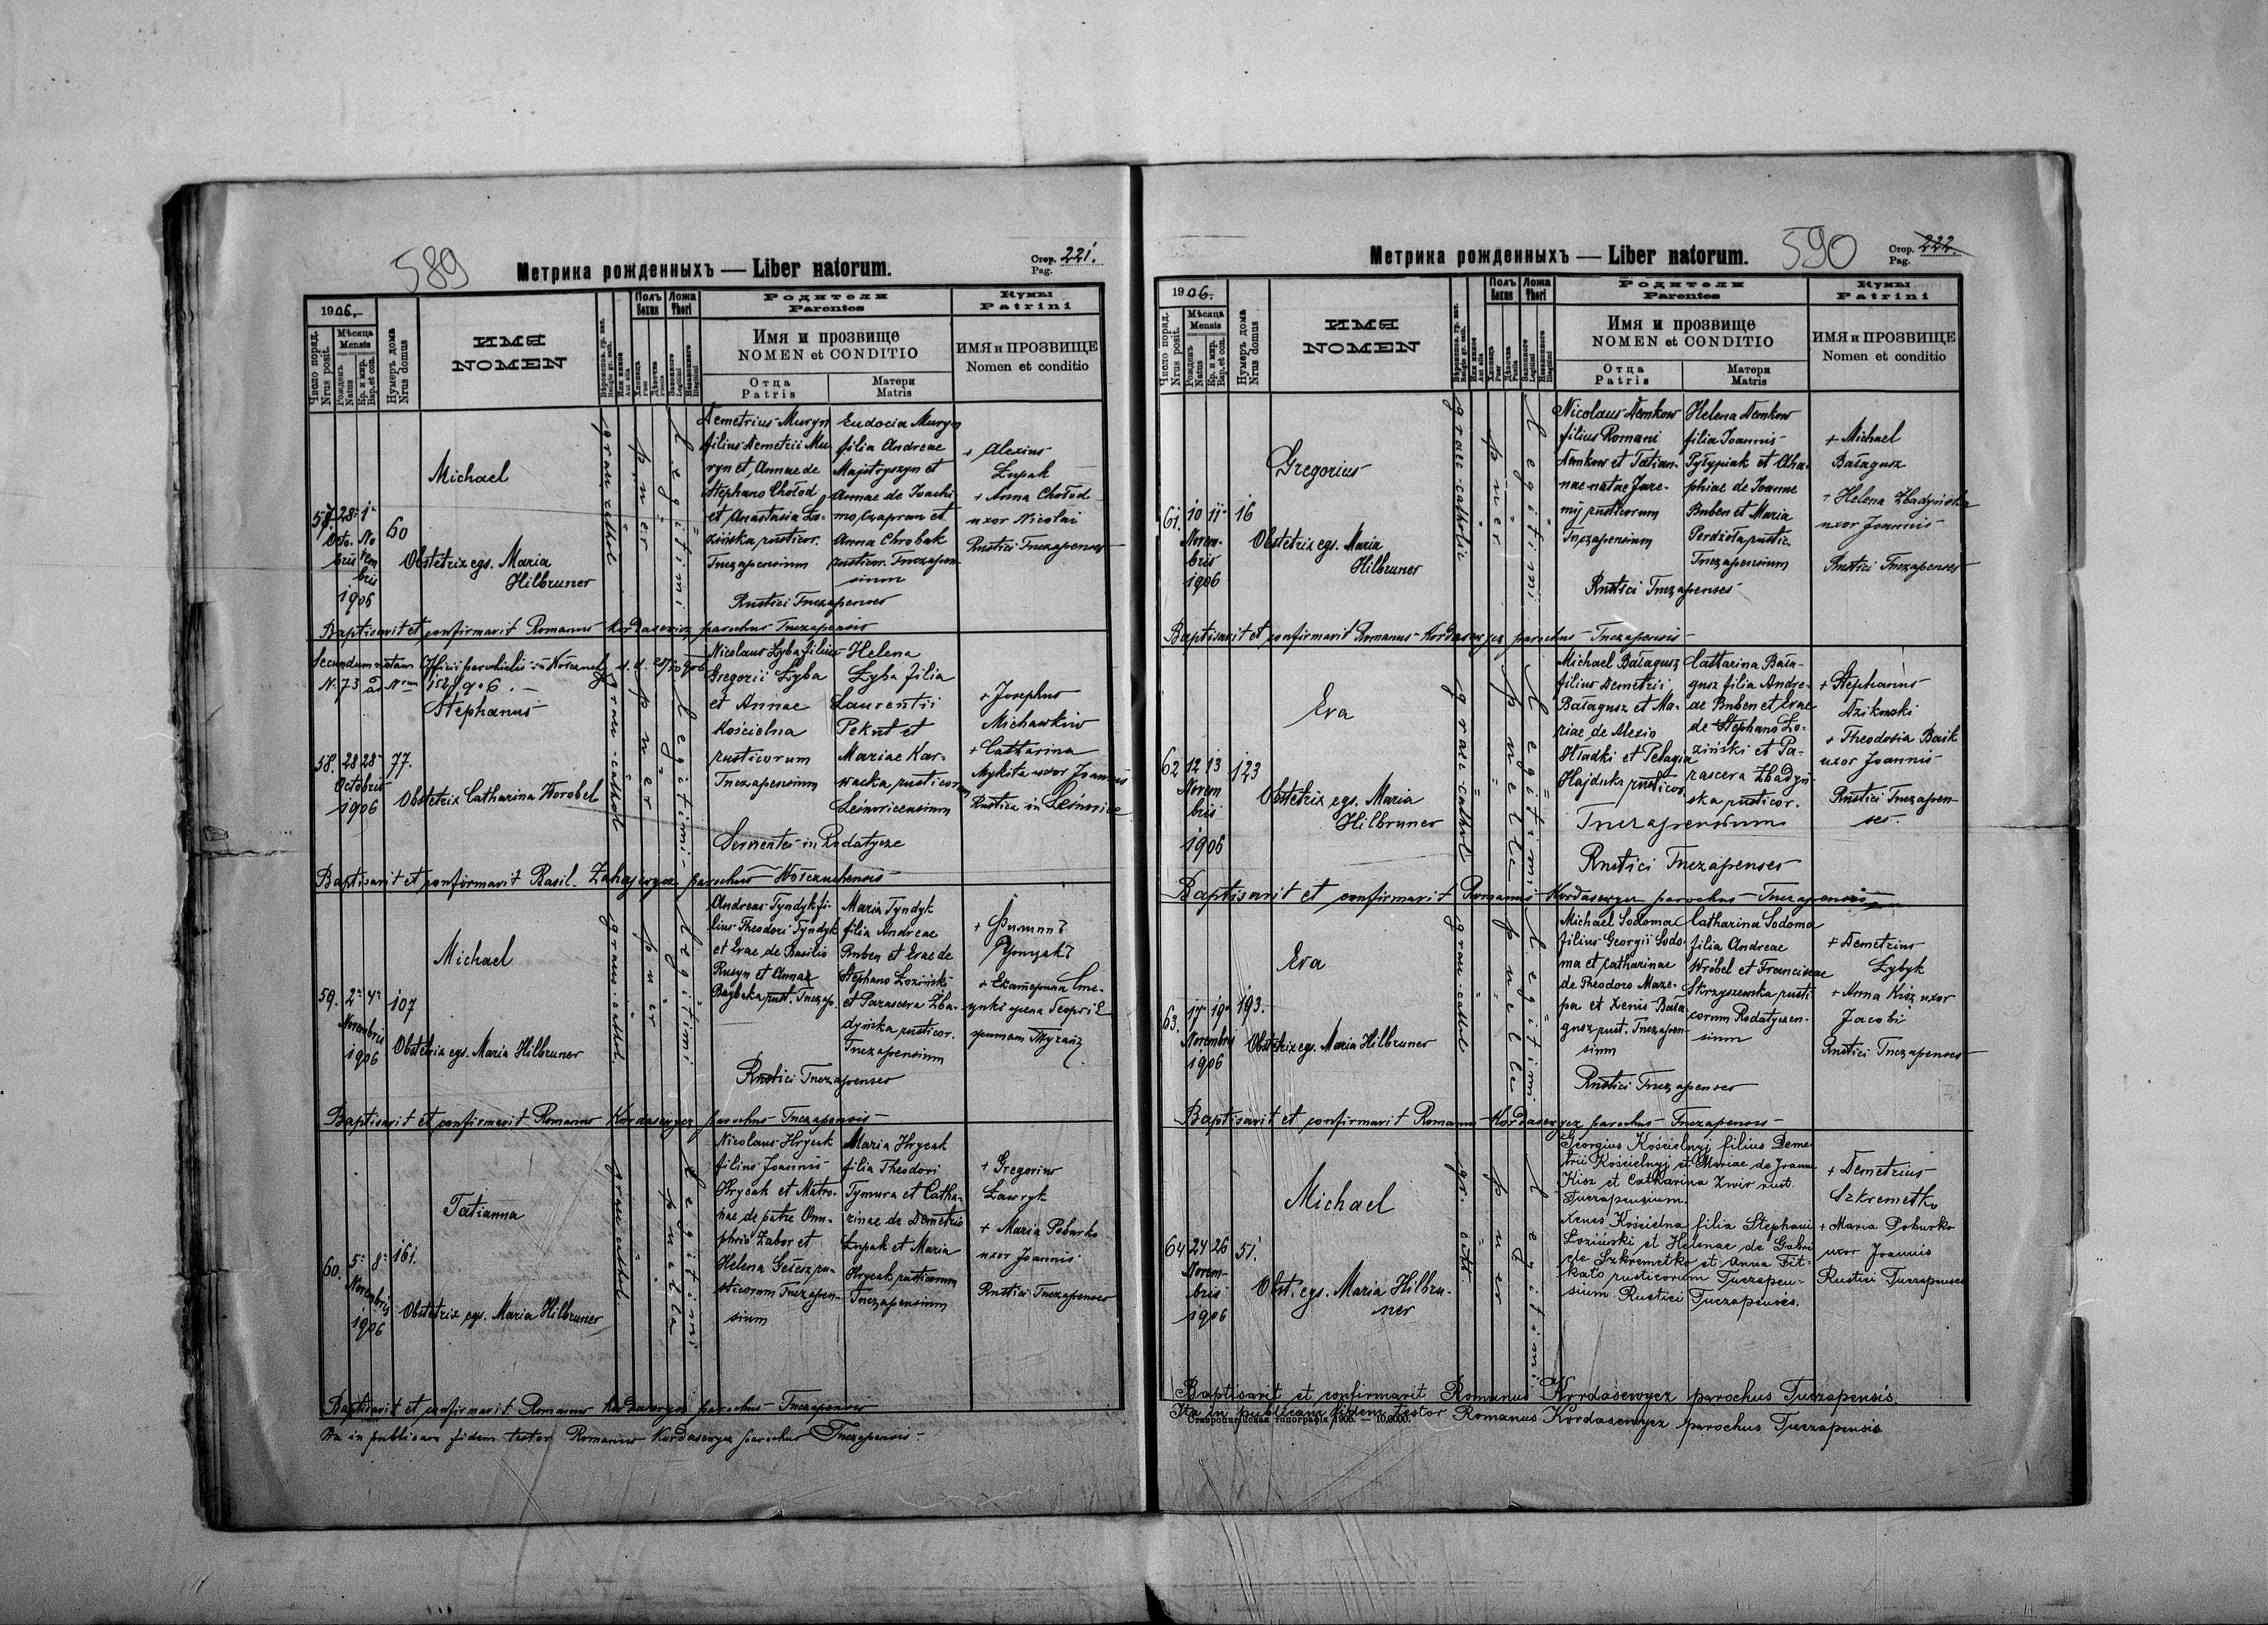 589
Метрика рожденныхъ — Liber natorum.
Стор. 221.
Pag.
1906.
Число поряд.
Nrus posit.
Мѣсяца
Mensis
Рожденъ
Natus
Кр. и мир.
Bap. et con.
Нумеръ дома
Nrus domus
ИМЯ
NOMEN
Полъ
Sexus
Ложа
Thori
Родители
Parentes
Имя и прозвище
NOMEN et CONDITIO
Отца
Patris
Матери
Matris
Кумы
Patrini
ИМЯ и ПРОЗВИЩЕ
Nomen et conditio
57. 28 1
Octobris Novembris
1906
60
Michael
Obstetrix egs. Maria
Hilbruner
graeci cathol.
puer
Legitimi
Demetrius Muryn
filius Demetrii Mu-
ryn et Annae de
Stephano Chołod
et Anastasia Ło-
zińska rusticor.
Tuczapensium
Eudocia Muryn
filia Andreae
Majstryszyn et
Annae de Joachi-
mo Czapran et
Anna Chrobak
rusticor. Tuczapen-
sium
Rustici Tuczapenses
+ Alexius
Łupak
+ Anna Chołod
uxor Nicolai
Rustici Tuczapenses
Baptisavit et confirmavit Romanus Kordasewicz parochus Tuczapensis
Secundum notam Officii parochialis in
N. 73 ad Nrum
58. 28 28
Octobris
1906
77.
Stephanus
Obstetrix Catharina Worobel
graeci-cathol.
puer
Legitimi
Nicolaus Łyba filius
Gregorii Łyba
et Annae
Kościelna
rusticorum
Tuczapensium
Helena
Łyba filia
Laurentii
Pekut et
Mariae Kar-
wacka rusticorum
Leśnovicensium
Servientes in Rodatycze
+ Josephus
Michawkiw
+ Catharina
Mykita uxor Joannis
Rustici in Leśnovice
Baptisavit et confirmavit Basil. parochus
59. 2 4
Novembris
1906
107
Michael
Obstetrix egs. Maria Hilbruner
graeci-cathol.
puer
Legitimi
Andreas Tyndyk fi-
lius Theodori Tyndyk
et Evae de Basilio
Rusyn et Anna
rust. Tuczap.
Maria Tyndyk
filia Andreae
Buben et Evae de
Stephano Łoziński
et Parascera Zba-
dyńska rusticor.
Tuczapensium
Rustici Tuczapenses
+ Филипъ
+ Екатерина
Baptisavit et confirmavit Romanus Kordasewycz parochus Tuczapensis
60. 5 8
Novembris
1906
161.
Tatianna
Obstetrix egs. Maria Hilbruner
graeci cathol.
puella
Legitimi
Nicolaus Hrycak
filius Joannis
Hrycak et Matro-
nae de patre Onu-
phrio Zabor et
Helena ru-
sticorum Tuczapen-
sium
Maria Hrycak
filia Theodori
Tymura et Catha-
rinae de Demetrio
Łupak et Maria
Hrycak rusticorum
Tuczapensium
+ Gregorius
Ławryk
+ Maria Poburko
uxor Joannis
Rustici Tuczapenses
Baptisavit et confirmavit Romanus Kordasewycz parochus Tuczapensis
Ita in publicam fidem testor Romanus Kordasewycz parochus Tuczapensis.
590
Метрика рожденныхъ — Liber natorum.
Стор. 222.
Pag.
1906.
Число поряд.
Nrus posit.
Мѣсяца
Mensis
Рожденъ
Natus
Кр. и мир.
Bap. et con.
Нумеръ дома
Nrus domus
ИМЯ
NOMEN
Полъ
Sexus
Ложа
Thori
Родители
Parentes
Имя и прозвище
NOMEN et CONDITIO
Отца
Patris
Матери
Matris
Кумы
Patrini
ИМЯ и ПРОЗВИЩЕ
Nomen et conditio
61. 10 11
Novem-
bris
1906
16
Gregorius
Obstetrix egs. Maria
Hilbruner
graeci-catholici
puer
Legitimi
Nicolaus Demkow
filius Romani
Demkow et Tatian-
nae natae Jare-
mij rusticorum
Tuczapensium
Helena Demkow
filia Joannis
Pyłypiak et Aha-
phiae de Joanne
Buben et Maria
Perdiota rustic.
Tuczapensium
Rustici Tuczapenses
+ Michael
Bałagusz
+ Helena Zbadyńska
uxor Joannis
Rustici Tuczapenses
Baptisavit et confirmavit Romanus Kordasewycz parochus Tuczapensis
62 12 13
Novem
bris
1906
123
Eva
Obstetrix egs. Maria
Hilbruner
graeci-cathol.
puella
Legitimi
Michael Bałagusz
filius Demetrii
Bałagusz et Ma-
riae de Alexio
Hładki et Pelagia
Hajduka rusticor.
Catharina Bała-
gusz filia Andre-
ae Buben et Evae
de Stephano Ło-
ziński et Pa-
rascera Zbadyń-
ska rusticor.
Tuczapensium
Rustici Tuczapenses
+ Stephanus
Dzikowski
+ Theodosia Baik
uxor Joannis
Rustici Tuczapen-
ses.
Baptisavit et confirmavit Romanus Kordasewycz parochus Tuczapensis
63. 17 19
Novembris
1906
193.
Eva
Obstetrix egs. Maria Hilbruner
graeci-cathol.
puella
Legitimi
Michael Sodoma
filius Georgii Sodo-
ma et Catharinae
de Theodoro Maze-
pa et Xenia Bała-
gusz rust. Tuczapen-
sium
Catharina Sodoma
filia Andreae
Wróbel et Franciscae
Skrzyszewska rusti
corum Rodatyczen-
sium
Rustici Tuczapenses
+ Demetrius
Łybyk
+ Anna Kisz uxor
Jacobi
Rustici Tuczapenses
Baptisavit et confirmavit Romanus Kordasewycz parochus Tuczapensis
64 24 26
Novem-
bris
1906
51.
Michael
Obst. egs. Maria Hilbru-
ner
gr. cath.
puer
Legitimi
Georgius Kościelnyj filius Deme-
trii Kościelnyj et Mariae de Joanne
Kisz et Catharina Zwir rust.
Tuczapensium.
Xenia Kościelna filia Stephani
Łoziński et Helenae de Gabri
ele Szkremetko et Anna Fit-
kało rusticorum Tuczapen-
sium. Rustici Tuczapenses.
+ Demetrius
Szkremetko
+ Maria Poburko
uxor Joannis
Rustici Tuczapenses
Baptisavit et confirmavit Romanus Kordasewycz parochus Tuczapensis.
Ita in publicam fidem testor Romanus Kordasewycz parochus Tuczapensis